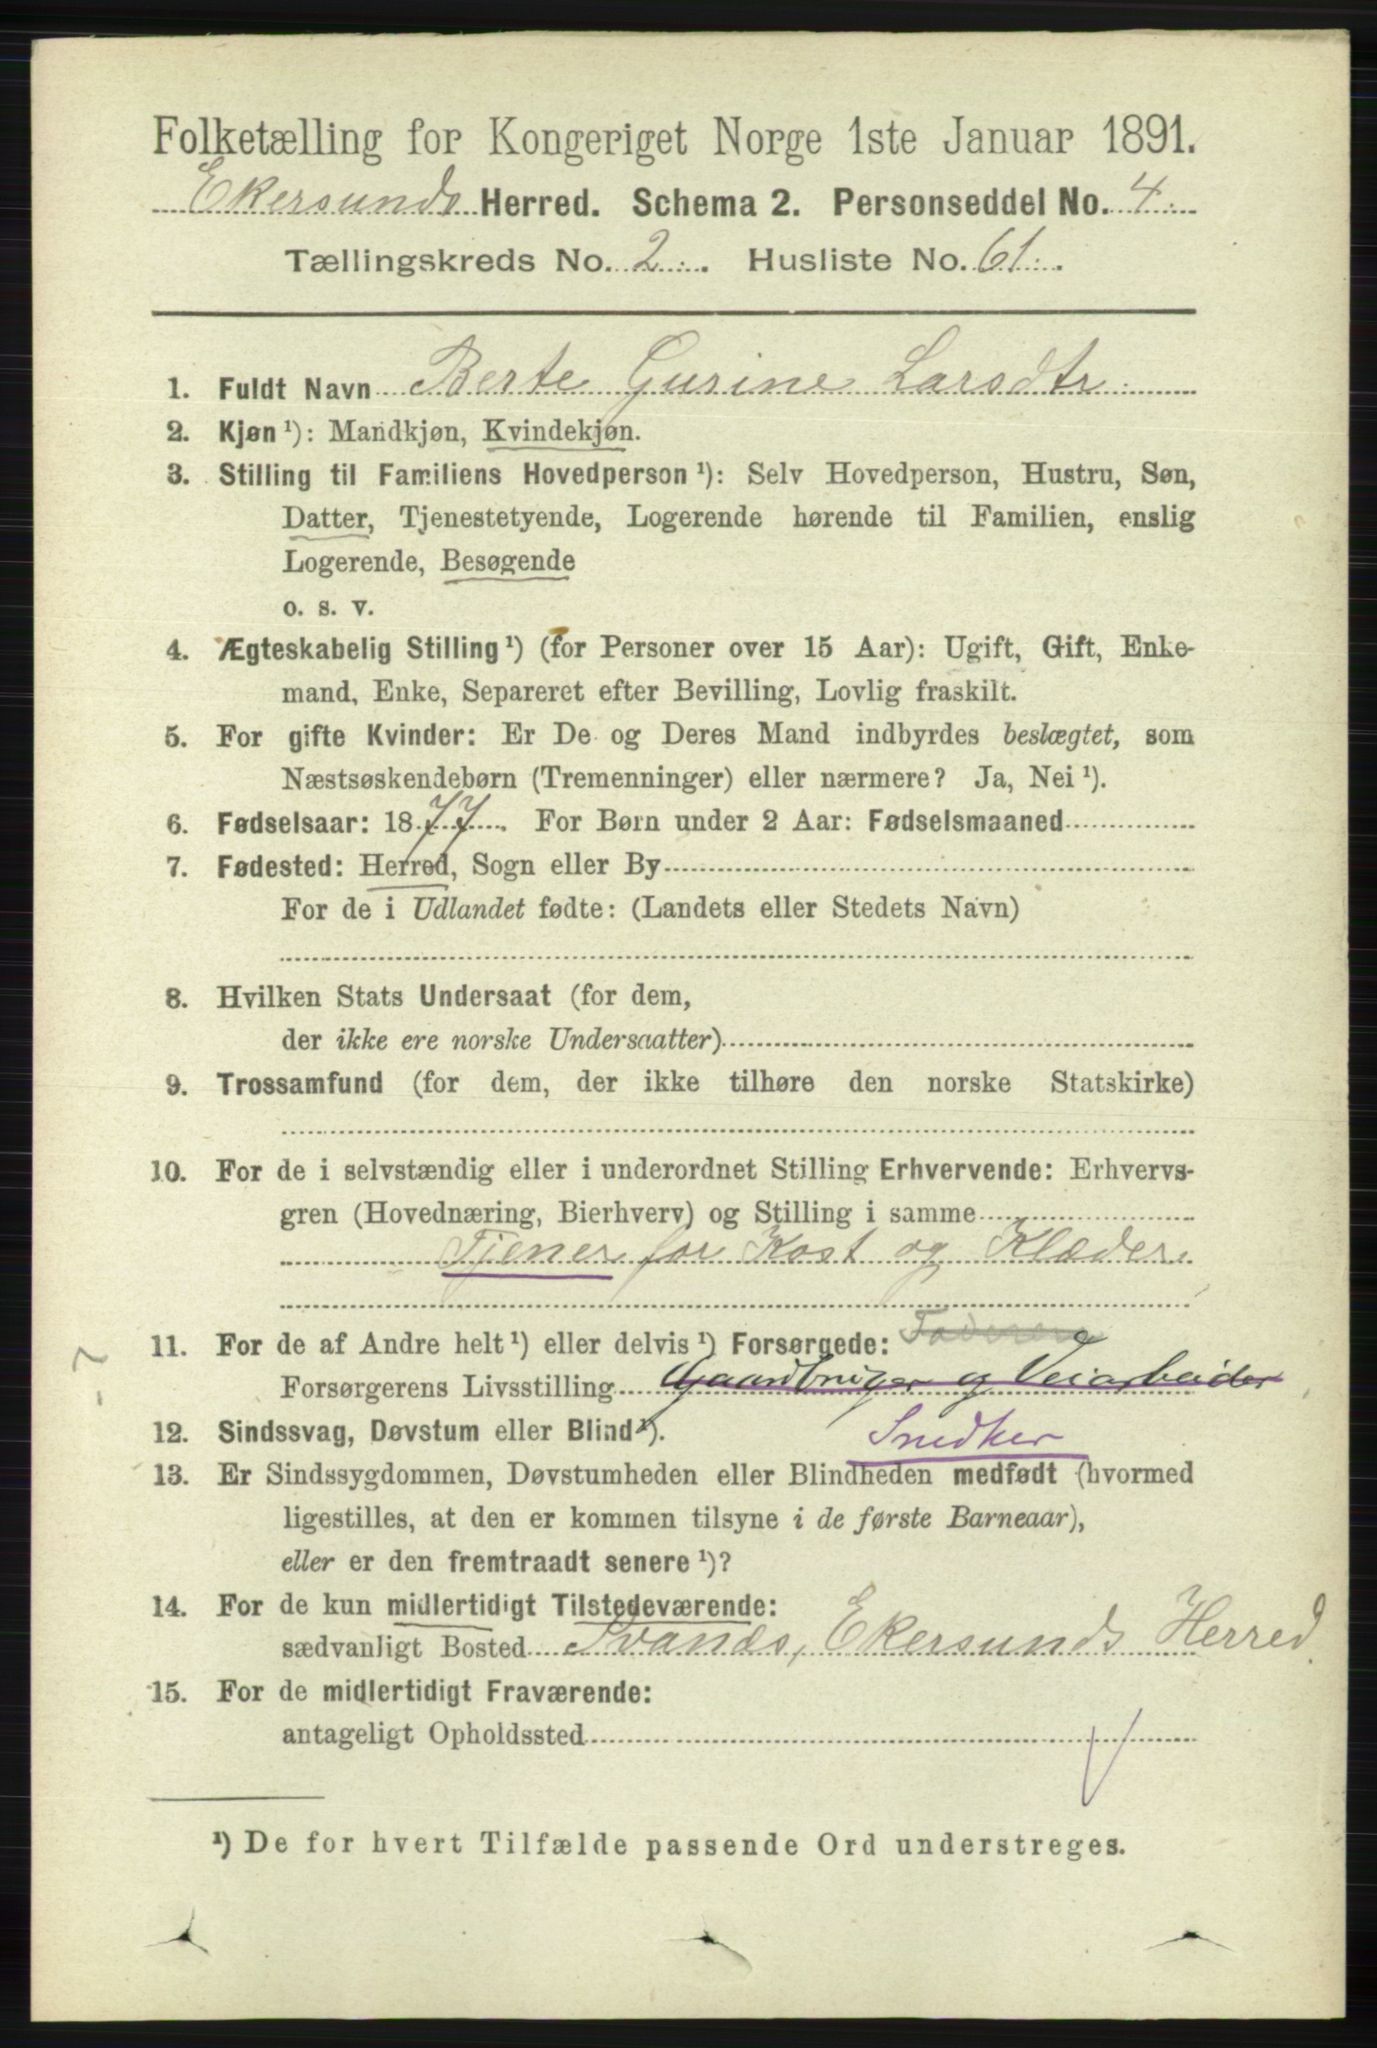 Folketælling for Kongeriget Norge 1ste Januar 1891.
Ekersunds Herred. Schema 2. Personseddel No. 4.
Tællingskreds No. 2. Husliste No. 61.
1. Fuldt Navn Berte Gurine Larsdtr.
2. Kjøn ¹): Mandkjøn, Kvindekjøn.
3. Stilling til Familiens Hovedperson ¹): Selv Hovedperson, Hustru, Søn,
Datter, Tjenestetyende, Logerende hørende til Familien, enslig
Logerende, Besøgende
o. s. v.
4. Ægteskabelig Stilling ¹) (for Personer over 15 Aar): Ugift, Gift, Enke-
mand, Enke, Separeret efter Bevilling, Lovlig fraskilt.
5. For gifte Kvinder: Er De og Deres Mand indbyrdes beslægtet, som
Næstsøskendebørn (Tremenninger) eller nærmere? Ja, Nei ¹).
6. Fødselsaar: 1877. For Børn under 2 Aar: Fødselsmaaned
7. Fødested: Herred, Sogn eller By
For de i Udlandet fødte: (Landets eller Stedets Navn)
8. Hvilken Stats Undersaat (for dem,
der ikke ere norske Undersaatter)
9. Trossamfund (for dem, der ikke tilhøre den norske Statskirke)
10. For de i selvstændig eller i underordnet Stilling Erhvervende: Erhvervs-
gren (Hovednæring, Bierhverv) og Stilling i samme
Tjener for Kost og Klæder.
11. For de af Andre helt ¹) eller delvis ¹) Forsørgede:
Forsørgerens Livsstilling Gaardbruger og Veiarbeider
12. Sindssvag, Døvstum eller Blind ¹). Snedker
13. Er Sindssygdommen, Døvstumheden eller Blindheden medfødt (hvormed
ligestilles, at den er kommen tilsyne i de første Barneaar),
eller er den fremtraadt senere ¹)?
14. For de kun midlertidigt Tilstedeværende:
sædvanligt Bosted Svanes, Ekersunds Herred.
15. For de midlertidigt Fraværende:
antageligt Opholdssted
¹) De for hvert Tilfælde passende Ord understreges.